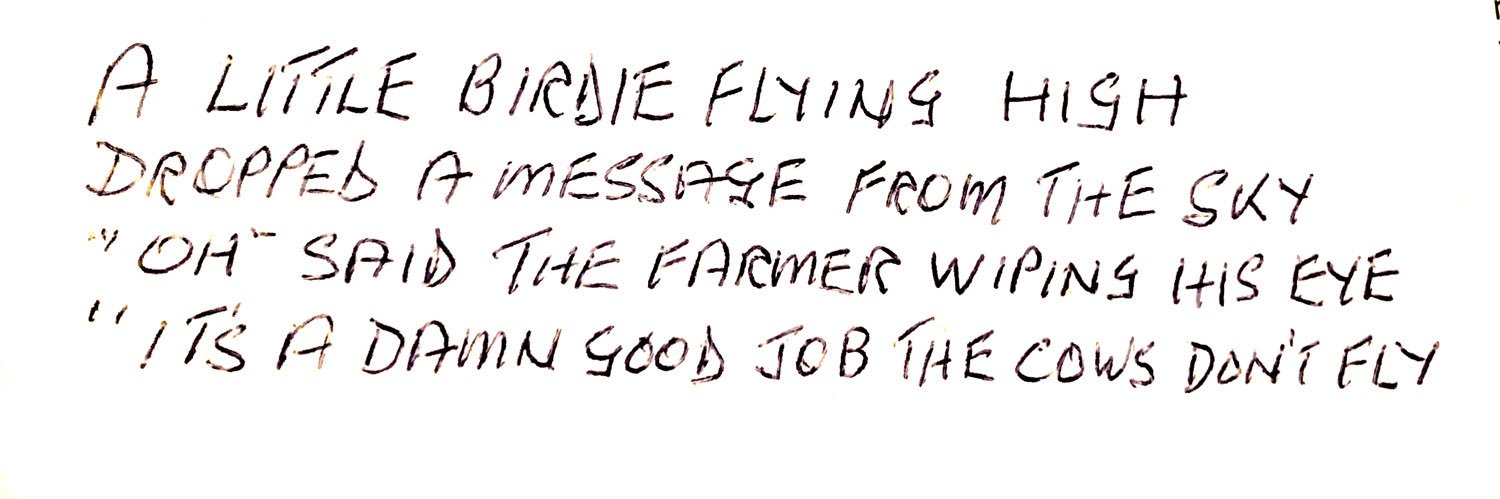 A LITTLE BIRDIE FLYING HIGH
DROPPED A MESSAGE FROM THE SKY
"OH" SAID THE FARMER WIPING HIS EYE
"IT'S A DAMN GOOD JOB THE COWS DON'T FLY